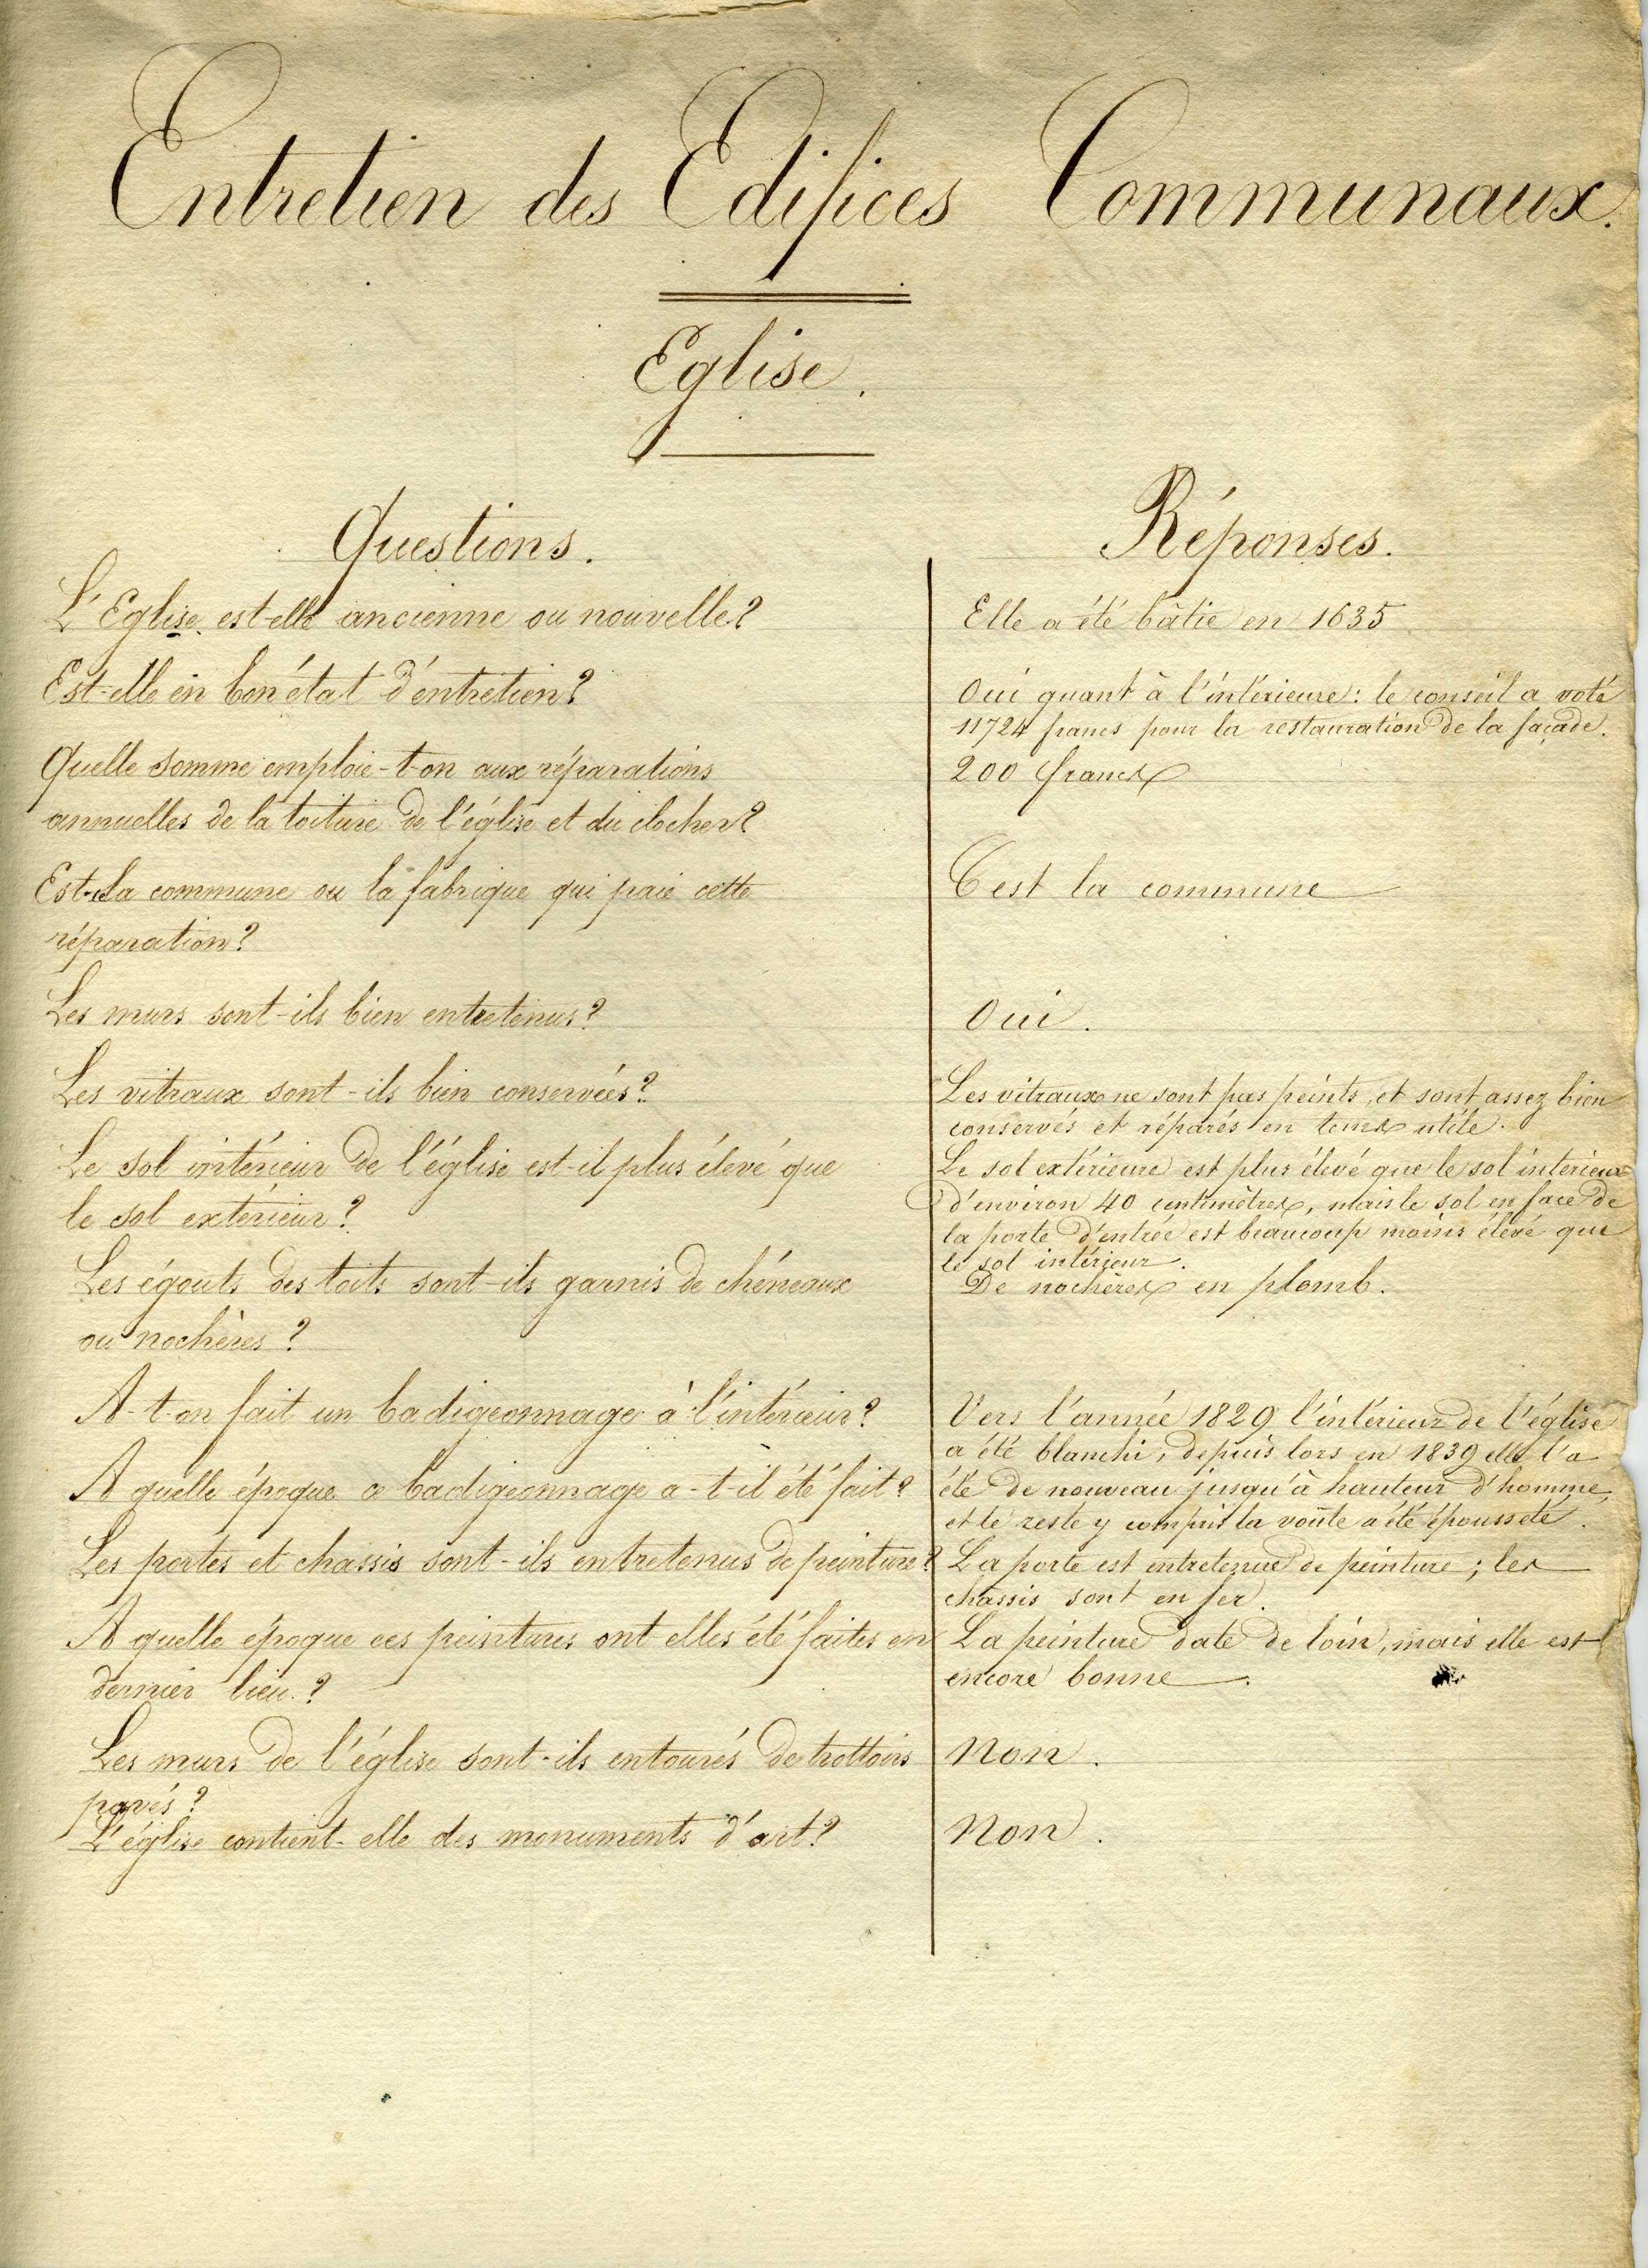 Entretien des Edifices Communaux.
Eglise.
Questions.
L'Eglise est-elle ancienne ou nouvelle?
Est-elle en bon état d'entretien?
Quelle somme emploie-t-on aux réparations
annuelles de la toiture de l'église et du clocher?
Est-ce la commune ou la fabrique qui paie cette
réparation?
Les murs sont-ils bien entretenus?
Les vitraux sont-ils bien conservées?
Le sol intérieur de l'église est-il plus élevé que
le sol extérieur?
Les égouts des toits sont-ils garnis de chéneaux
ou nochères?
A-t-on fait un badigeonnage à l'intérieur?
A quelle époque ce badigeonnage a-t-il été fait?
Les portes et chassis sont-ils entretenus de peinture?
A quelle époque ces peintures ont elles été faites en
dernier lieu?
Les murs de l'église sont-ils entourés de trottoirs
pavés?
L'église contient-elle des monuments d'art?
Réponses.
Elle a été bâtie en 1635
Oui quant à l'intérieure: le conseil a voté
11724 francs pour la restauration de la façade.
200 francs
C'est la commune
Oui.
Les vitraux ne sont pas peints, et sont assez bien
conservés et réparés en tems utile.
Le sol extérieure est plus élevé que le sol intérieur
d'environ 40 centimètres, mais le sol en face de
la porte d'entrée est beaucoup moins élevé que
le sol intérieur.
De nochères en plomb.
Vers l'année 1829 l'intérieur de l'église
a été blanchi, depuis lors en 1839 elle l'a
été de nouveau jusqu'à hauteur d'homme,
et le reste y compris la voûte a été épousseté.
La porte est entretenue de peinture; les
chassis sont en fer.
La peinture date de loin, mais elle est
encore bonne.
Non.
Non.